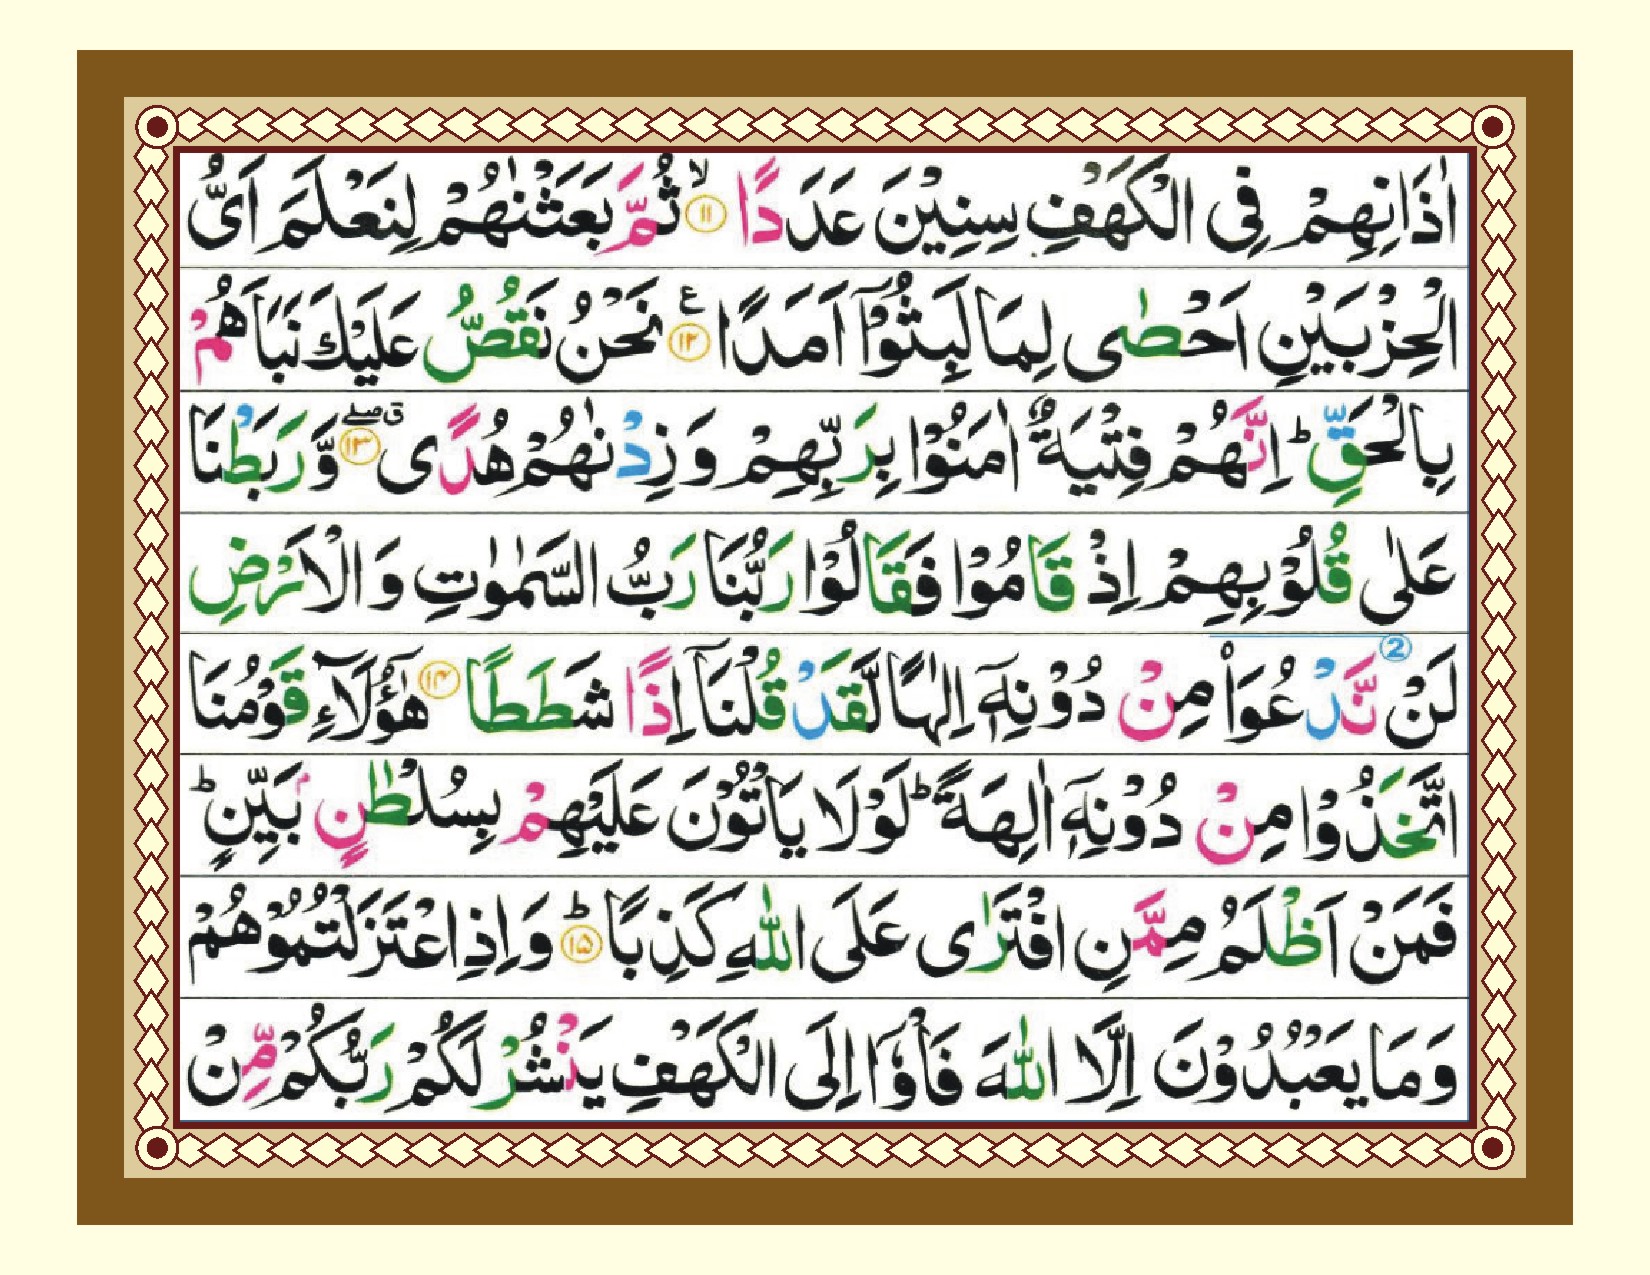 اٰذَانِهِمْ فِى الْكَهْفِ سِنِيْنَ عَدَدًا ۙ﴿۱۱﴾ ثُمَّ بَعَثْنٰهُمْ لِنَعْلَمَ اَىُّ
الْحِزْبَيْنِ اَحْصٰى لِمَا لَبِثُوْۤا اَمَدًا ﴿۱۲﴾ ع نَحْنُ نَقُصُّ عَلَيْكَ نَبَاَهُمْ
بِالْحَقِّ ؕ اِنَّهُمْ فِتْيَةٌ اٰمَنُوْا بِرَبِّهِمْ وَ زِدْنٰهُمْ هُدًى ۖق ﴿۱۳﴾ وَّ رَبَطْنَا
عَلٰى قُلُوْبِهِمْ اِذْ قَامُوْا فَقَالُوْا رَبُّنَا رَبُّ السَّمٰوٰتِ وَ الْاَرْضِ
لَنْ نَّدْعُوَا۟ مِنْ دُوْنِهٖۤ اِلٰهًا لَّقَدْ قُلْنَاۤ اِذًا شَطَطًا ﴿۱۴﴾ هٰۤؤُلَآءِ قَوْمُنَا
اتَّخَذُوْا مِنْ دُوْنِهٖۤ اٰلِهَةً ؕ لَوْ لَا يَاْتُوْنَ عَلَيْهِمْ بِسُلْطٰنٍۭ بَيِّنٍ ؕ
فَمَنْ اَظْلَمُ مِمَّنِ افْتَرٰى عَلَى اللّٰهِ كَذِبًا ؕ﴿۱۵﴾ وَ اِذِ اعْتَزَلْتُمُوْهُمْ
وَ مَا يَعْبُدُوْنَ اِلَّا اللّٰهَ فَاْوٗۤا اِلَى الْكَهْفِ يَنْشُرْ لَكُمْ رَبُّكُمْ مِّنْ